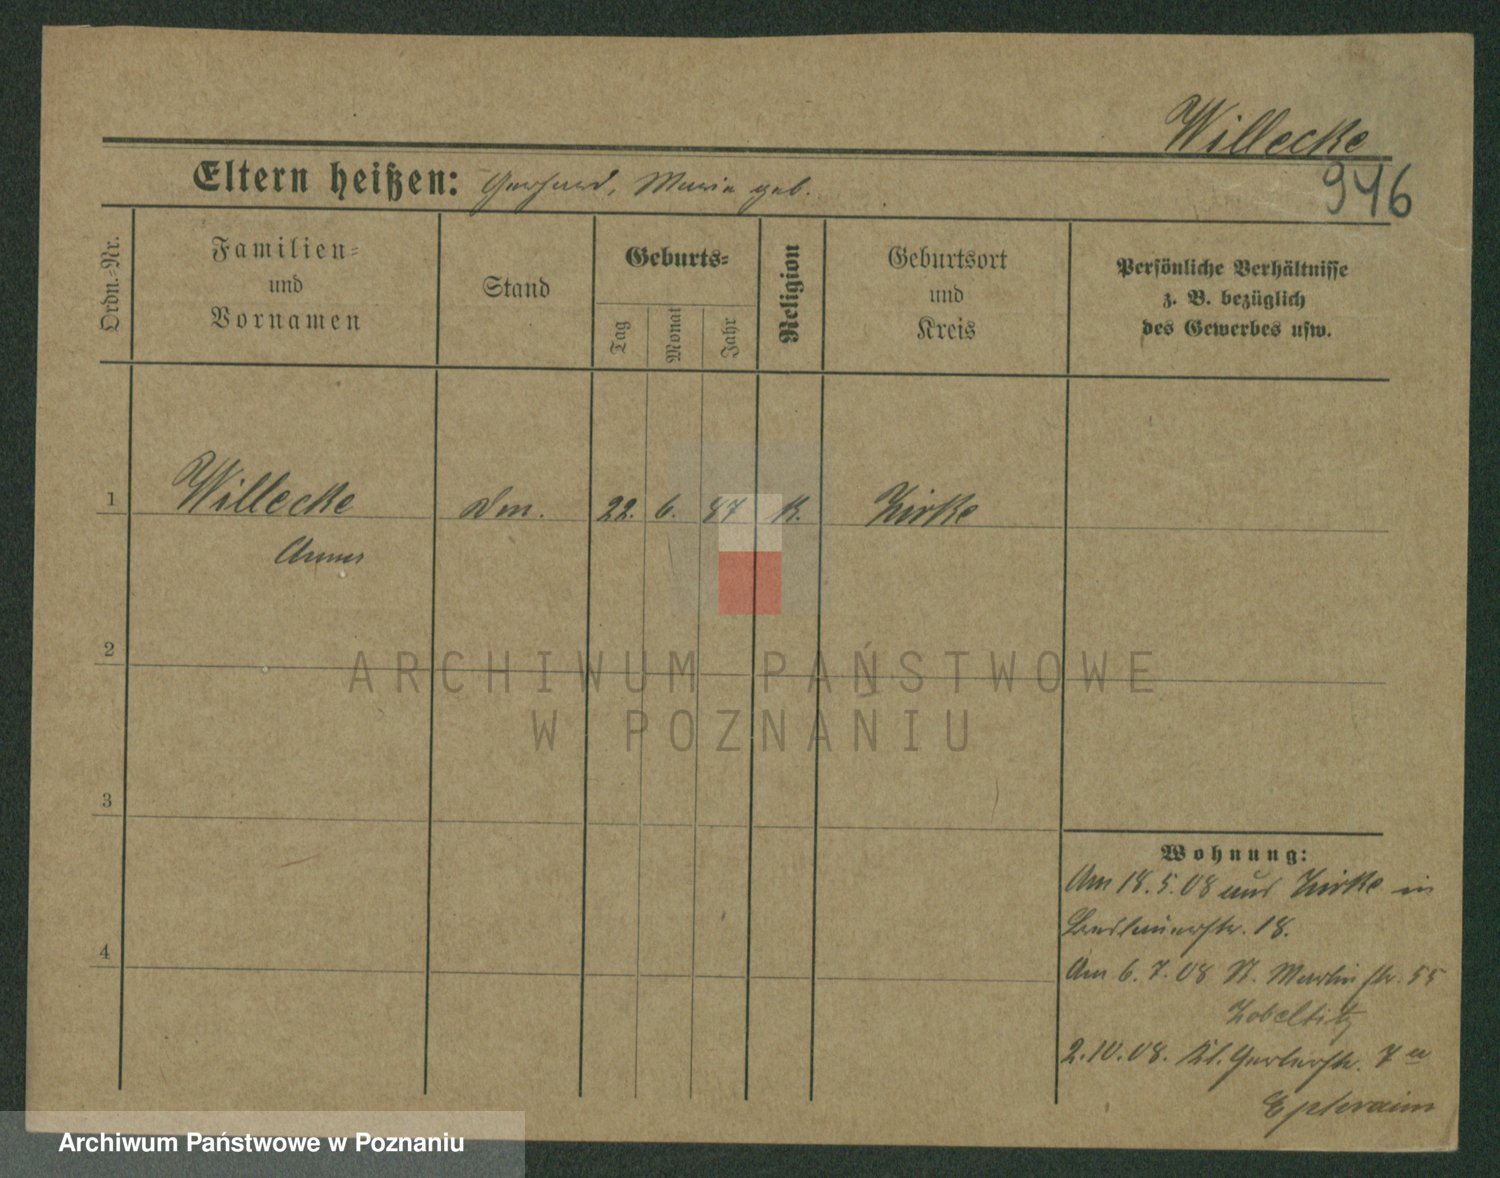 Willecke
946
Eltern heißen: Gerhard, Maria geb.
Ordn.-Nr.
Familien-
und
Vornamen
Stand
Geburts-
Tag
Monat
Jahr
Religion
Geburtsort
und
Kreis
Persönliche Verhältnisse
z. B. bezüglich
des Gewerbes usw.
1 Willecke 22. 6. 87 K. Zirke
Anna
2
3
4
Wohnung:
Am 18.5.08 aus Zirke in
18.
Am 6.7.08 St. Martinstr. 55
Zobeltitz
2.10.08. Kl. Gerberstr. 7
Ephraim
ARCHIWUM PAŃSTWOWE
W POZNANIU
Archiwum Państwowe w Poznaniu